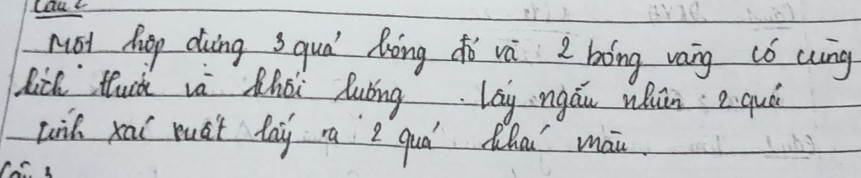 Câu 2
Một hộp đựng 3 quả bóng đỏ và 2 bóng vàng có cùng
kích thước và khối lượng. Lấy ngẫu nhiên 2 quả
tính xác xuất lấy ra 2 quả khác màu.
Câu 3